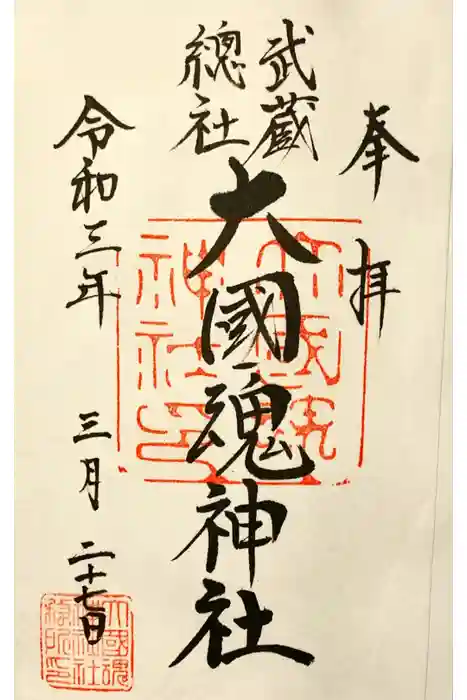 奉拝
武蔵
總社
大國魂神社
令和三年 三月 二十七日
大國魂神社印